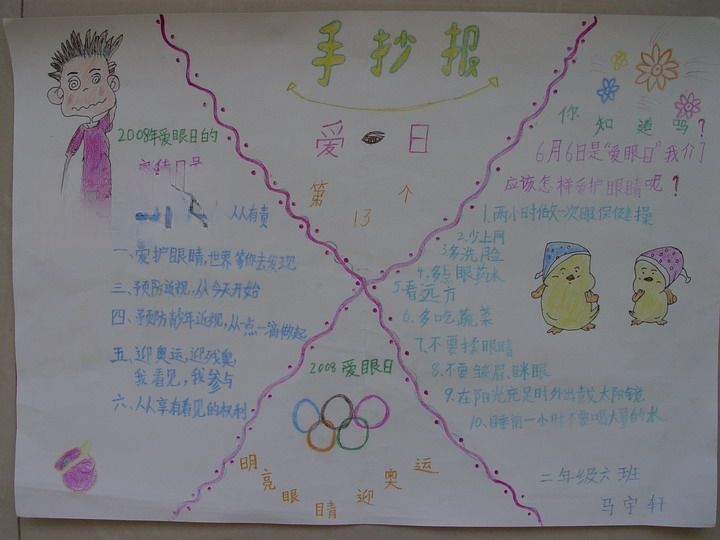 手抄报
爱 日
第 13 个
2008年爱眼日的
宣传口号
人人有责
一、爱护眼睛,世界等你去发现
三、预防近视,从今天开始
四、预防青少年近视,从一点一滴做起
五、迎奥运,迎残奥
我看见,我参与
六、人人享有看见的权利
你知道吗?
6月6日是“爱眼日”我们
应该怎样爱护眼睛呢?
1.两小时做一次眼保健操
2.少上网
3.多洗脸
4.多点眼药水
5.看远方
6.多吃蔬菜
7.不要揉眼睛
8.不要皱眉、眯眼
9.在阳光充足时外出戴太阳镜
10.睡前一小时不要喝大量的水
2008爱眼日
明亮眼睛迎奥运
二年级六班
马宇轩